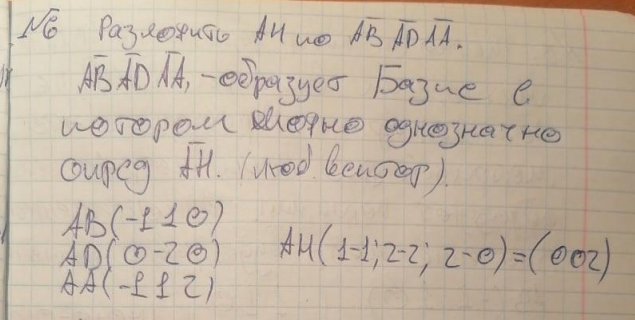 №6 Разложить AH по AB AD AA.
AB AD AA, - образует Базис в
котором можно однозначно
опред AH. (люб. вектор).
AB(-1 1 0)
AD(0 -2 0) AH(1-1; 2-2; 2-0)=(0 0 2)
AA(-1 1 2)